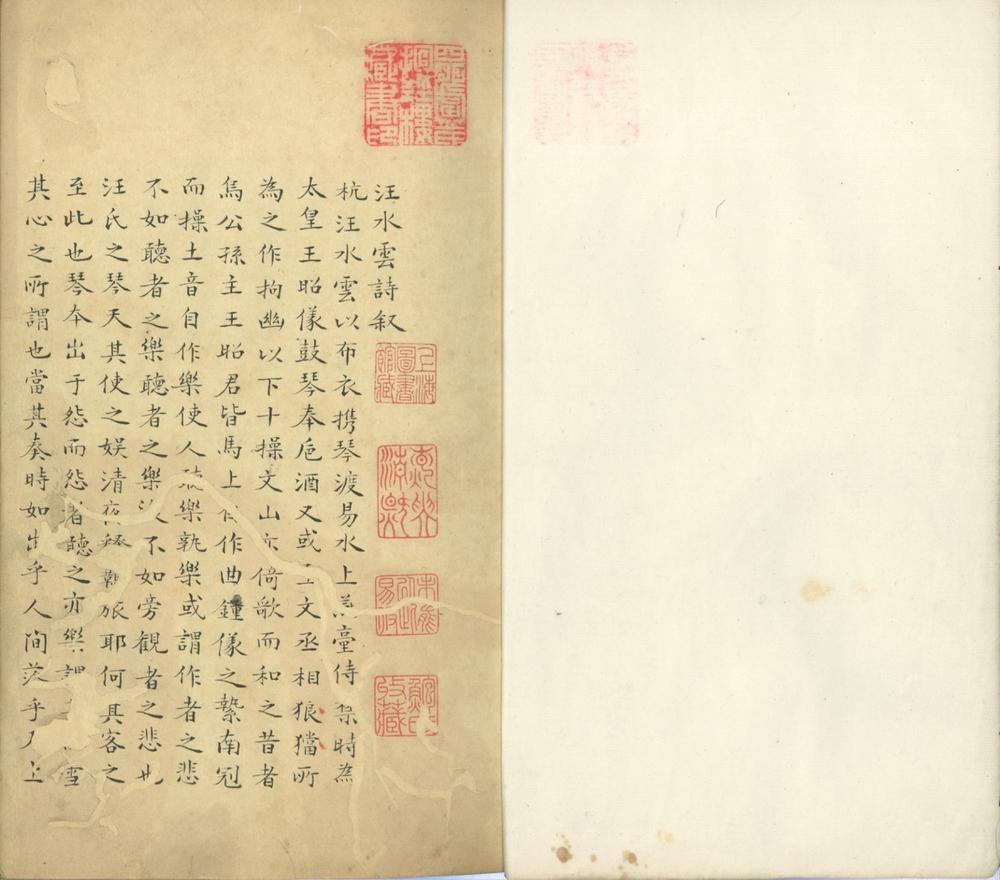 藏書印
汪水雲詩叙
上海圖書館藏
鮑氏收藏
杭汪水雲以布衣携琴渡易水上燕臺侍禁時為
太皇王昭儀鼓琴奉巵酒又或至文丞相狼所
為之作拘幽以下十操文山亦倚歌而和之昔者
烏公孫主王昭君皆馬上自作曲鐘儀之縶南冠
而操土音自作樂使人聽樂孰樂或謂作者之悲
不如聽者之樂聽者之樂又不如旁観者之悲也
汪氏之琴天其使之娱清夜釋覊旅耶何其客之
至此也琴本出于怨而怨者聽之亦樂謂雪
其心之所謂也當其奏時如出乎人間茫乎天上